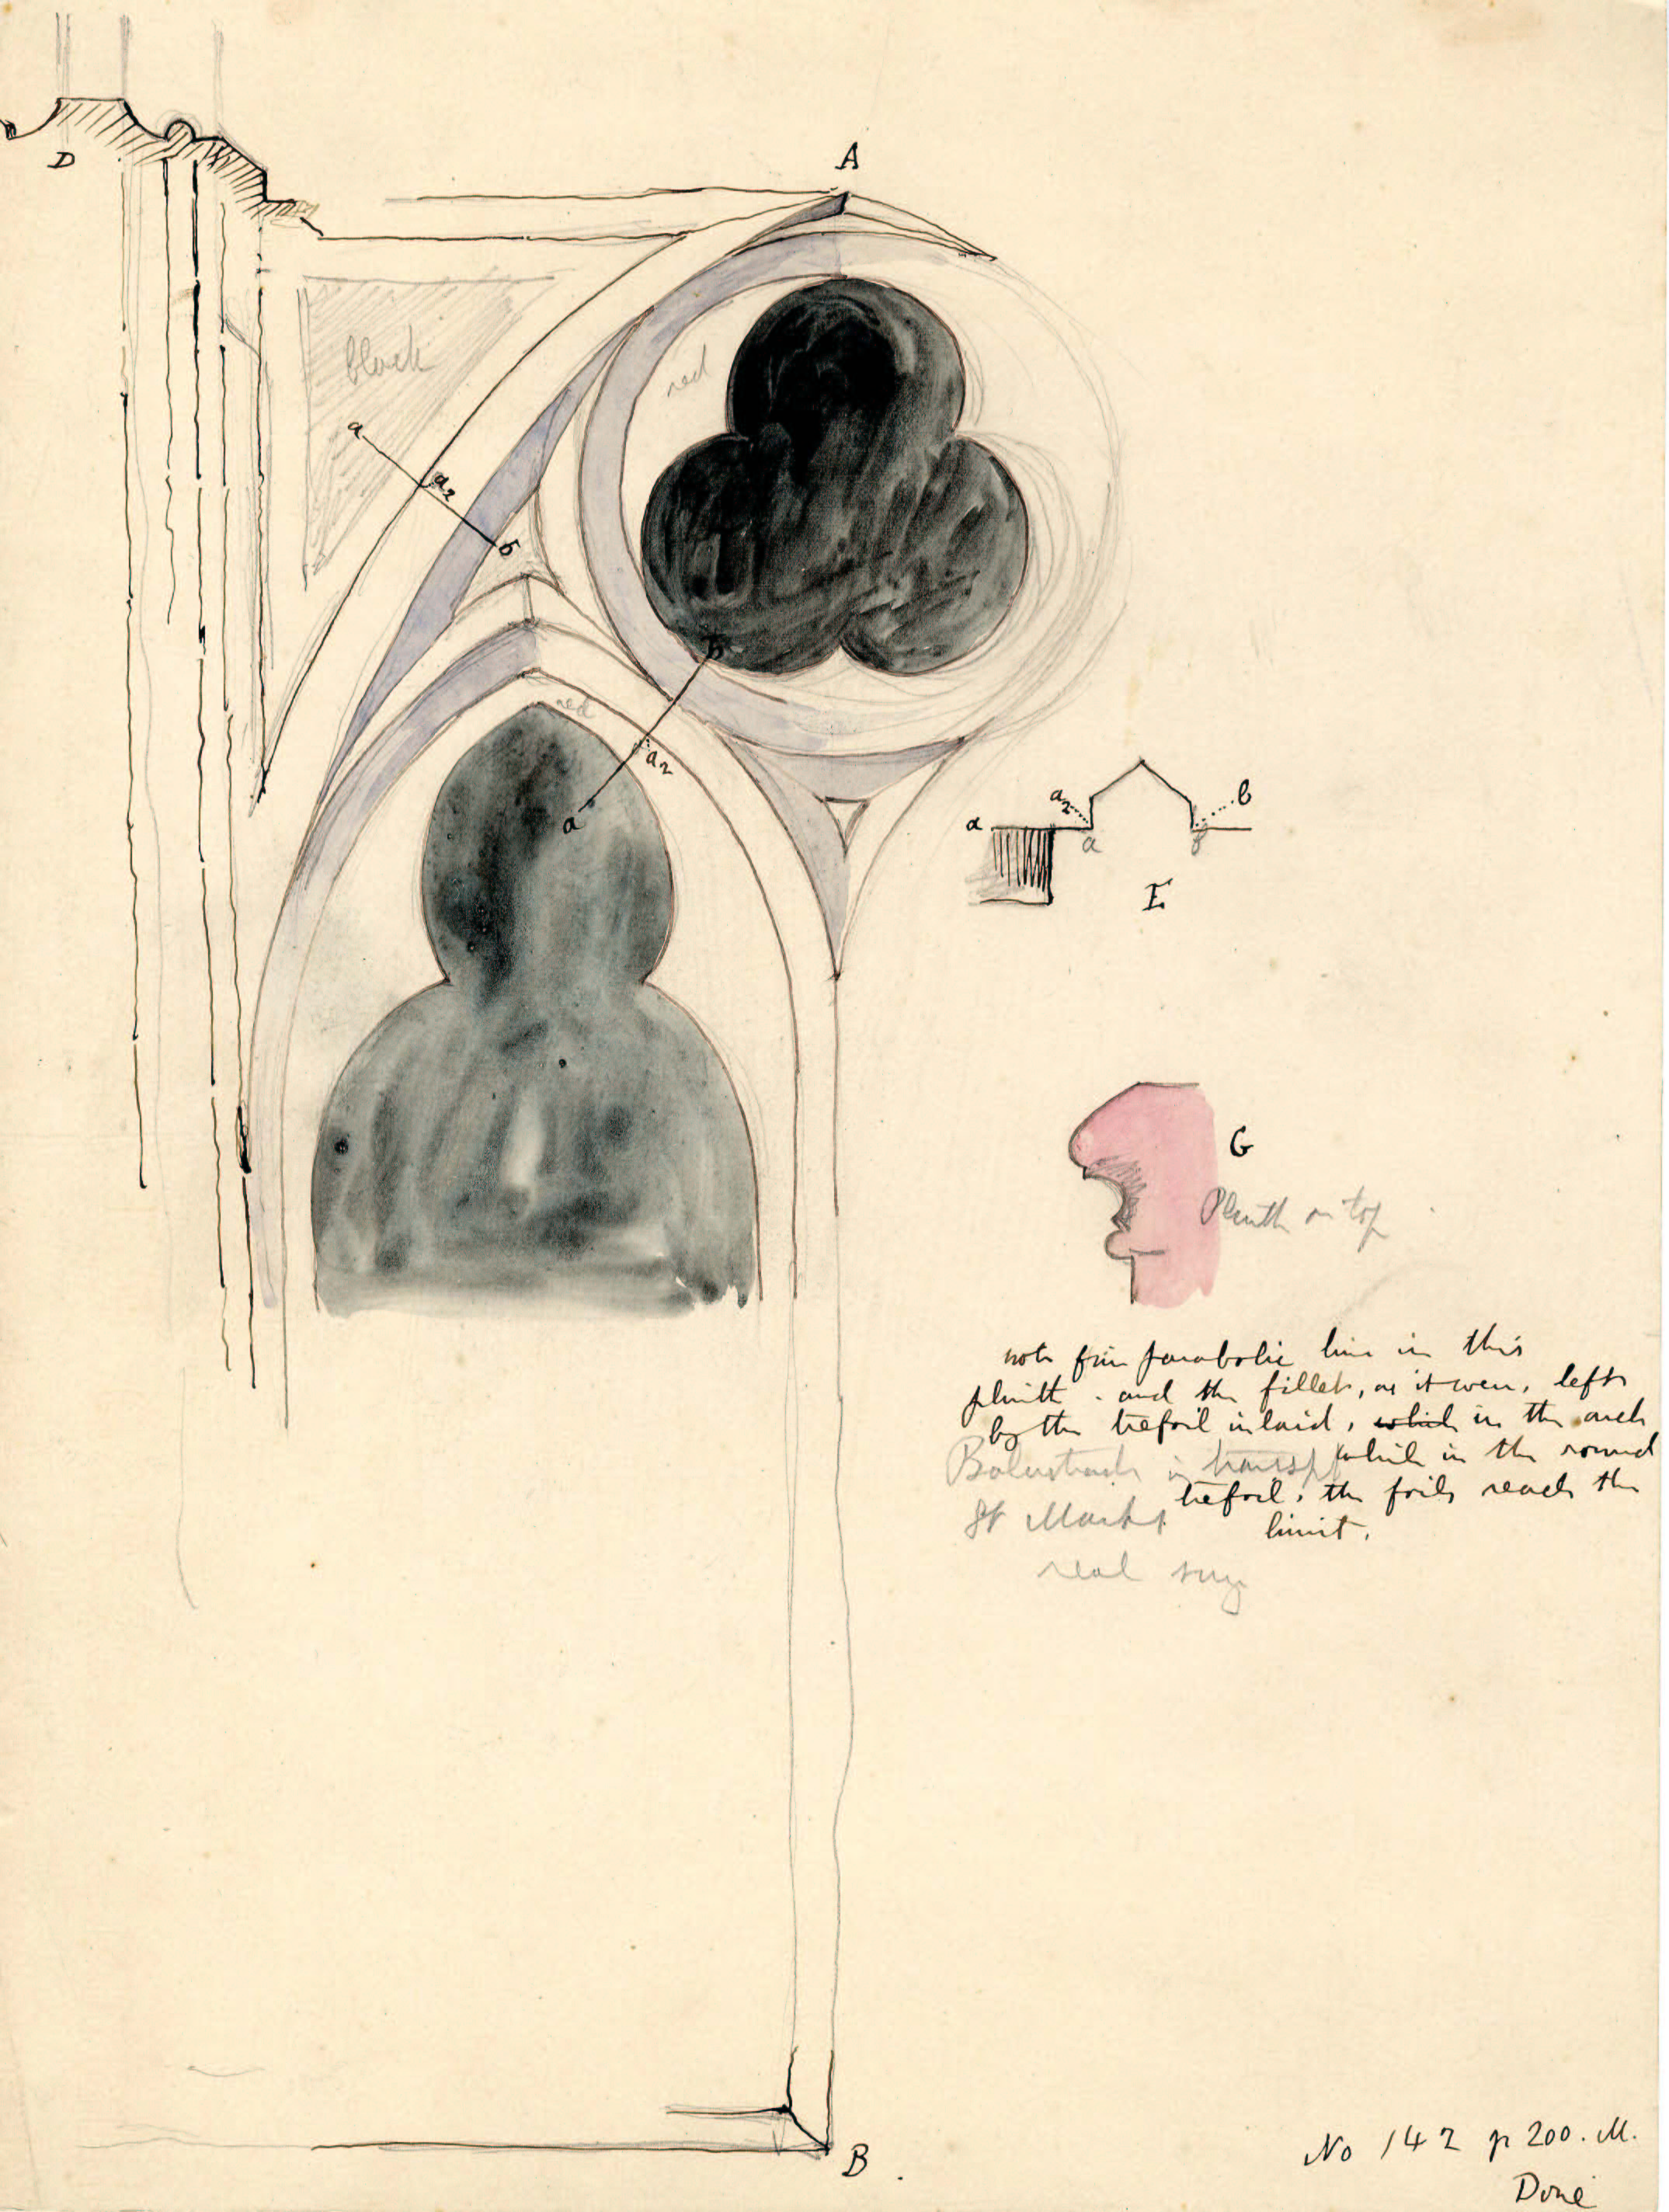 D
A
block
red
a
a2
b
red
b
a2
a
a2
b
a
a
b
E
G
Plinth on top
note fine parabolic line in this
plinth. and the fillet, as it were, left
by the trefoil inlaid, which in the arch
while in the round
trefoil, the foils reach the
limit.
Balustrade in
St Marks
real size
B.
No 142 p 200. M.
Done